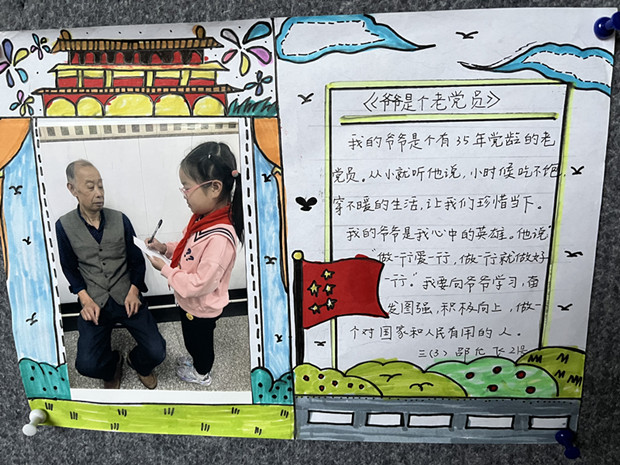 《爷爷是个老党员》
我的爷爷是个有35年党龄的老
党员。从小就听他说，小时候吃不饱
穿不暖的生活，让我们珍惜当下。
我的爷爷是我心中的英雄。他说"
做一行爱一行，做一行就做好
一行"。我要向爷爷学习，奋
发图强，积极向上，做一
个对国家和人民有用的人。
三(3)